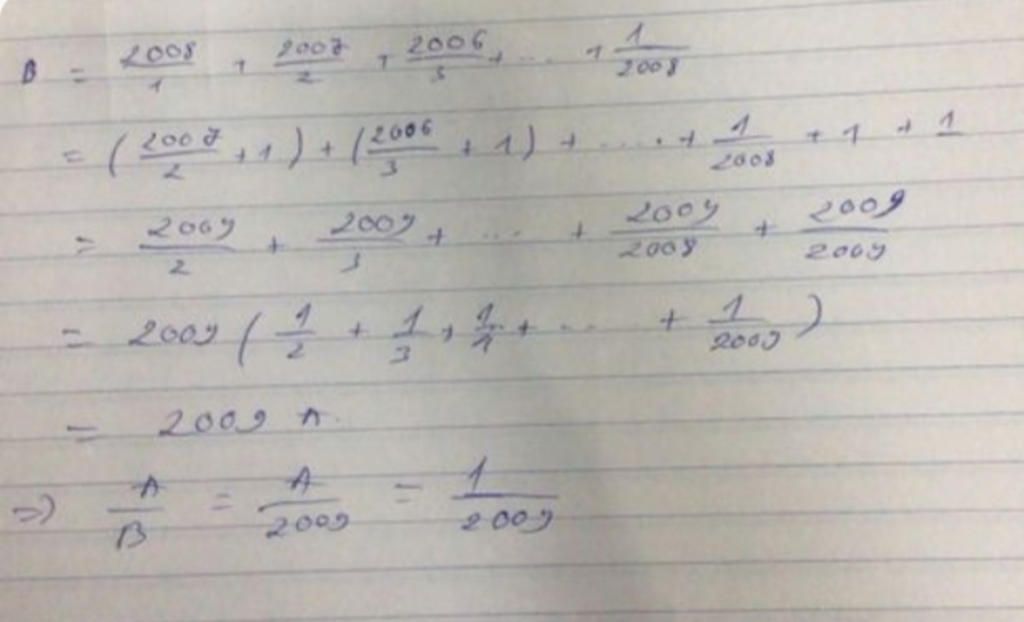 B = 2008/1 + 2007/2 + 2006/3 + ... + 1/2008
= (2007/2 + 1) + (2006/3 + 1) + .... + 1/2008 + 1 + 1
= 2009/2 + 2009/3 + ... + 2009/2008 + 2009/2009
= 2009 (1/2 + 1/3 + 1/4 + .... + 1/2009)
= 2009 A.
=> A/B = A/2009 = 1/2009